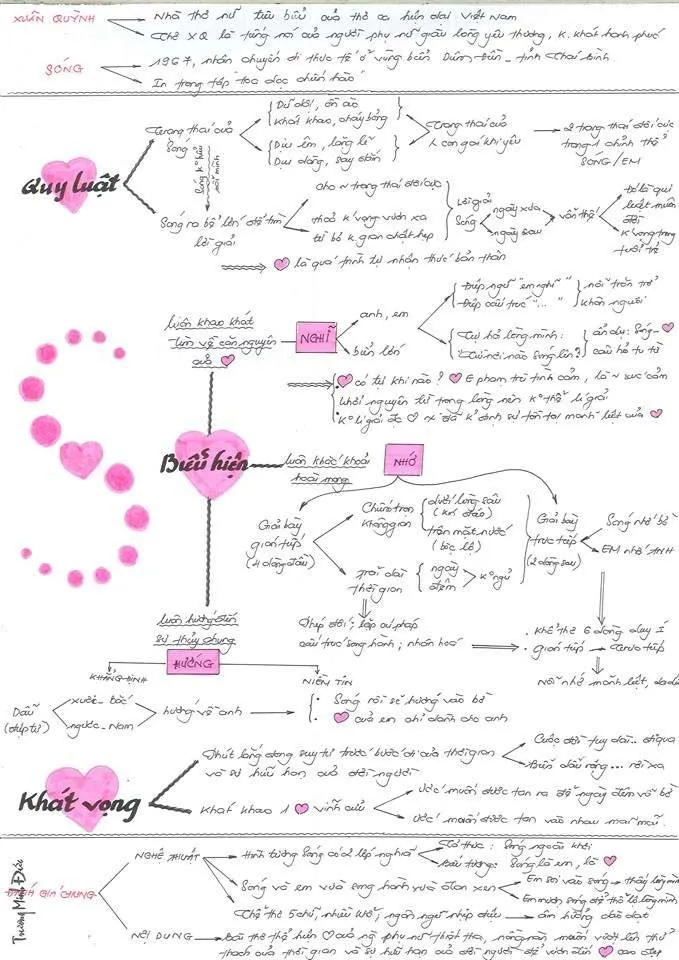 XUÂN QUỲNH
Nhà thơ nữ tiêu biểu của thơ ca hiện đại Việt Nam
Thơ XQ là tiếng nói của người phụ nữ giàu lòng yêu thương, k. khát hạnh phúc
SÓNG
1967, nhân chuyến đi thực tế ở vùng biển Diêm Điền - tỉnh Thái Bình
In trong tập Hoa dọc chiến hào
Quy luật
Trạng thái của
Sóng
Dữ dội, ồn ào
Khát khao, cháy bỏng
Dịu êm, lặng lẽ
Dịu dàng, say đắm
Trạng thái của
1 con gái khi yêu
2 trạng thái đối cực
trong 1 chỉnh thể
SÓNG / EM
Sông k° hiểu
nổi mình
Sóng ra bể lớn để tìm
lời giải
cho ~ trạng thái đối cực
thoả k vọng vươn xa
từ bỏ k gian chật hẹp
Lời giải
Sóng
ngày xưa
ngày sau
vẫn thế
là quá trình tự nhận thức bản thân
luôn khao khát
tìm về căn nguyên
của
NGHĨ
anh, em
biển lớn
Điệp ngữ "em nghĩ"
Điệp cấu trúc "... "
nỗi trăn trở
khôn nguôi
Tự hỏi lòng mình:
"Từ nơi nào Sóng lên?"
ẩn dụ: Sóng -
câu hỏi tu từ
có từ khi nào? E phạm trù tình cảm, là ~ xúc cảm
khởi nguyên từ trong lòng nên k° thể lí giải
Biểu hiện
luôn khắc khoải
hoài mong
NHỚ
Giãi bày
gián tiếp
(4 dòng đầu)
Chiều trong
không gian
dưới lòng sâu
(kín đáo)
trên mặt nước
(bộc lộ)
Trải dài
thời gian
ngày
đêm
k° ngủ
Giãi bày
trực tiếp
(2 dòng sau)
Sóng nhớ bờ
EM nhớ ANH
Phép đối; lặp cú pháp
cấu trúc song hành; nhân hoá
khổ thơ 6 dòng duy I
gián tiếp → trực tiếp
Nỗi nhớ mãnh liệt,
luôn hướng đến
sự thủy chung
HƯỚNG
KHẲNG ĐỊNH
Dẫu
(điệp từ)
xuôi - bắc
ngược - Nam
hướng về anh
NIỀM TIN
Sóng rồi sẽ hướng vào bờ
của em chỉ dành cho anh
Khát vọng
Phút lắng đọng suy tư trước bước đi của thời gian
và sự hữu hạn của đời người
Cuộc đời tuy dài.. đi qua
Biển dẫu rộng... rời xa
Khát khao 1 vĩnh cửu
Ước muốn được tan ra để ngày đêm vỗ bờ
Ước muốn được tan vào nhau mãi mãi
ĐÁNH GIÁ CHUNG
NGHỆ THUẬT
Hình tượng Sóng có 2 lớp nghĩa
Tả thực: Sóng ngoài khơi
Biểu tượng: Sóng là em, là
Sóng và em vừa song hành vừa đan xen
Em soi vào sóng → thấy lòng mình
Em mượn sóng để thổ lộ lòng mình
Thể thơ 5 chữ, nhiều vần, ngôn ngữ nhịp điệu → âm hưởng dào dạt
NỘI DUNG
Bài thơ thể hiện của ng phụ nữ thiết tha, nồng nàn muốn vượt lên thử
thách của thời gian và sự hữu hạn của đời người để vươn đến cao đẹp